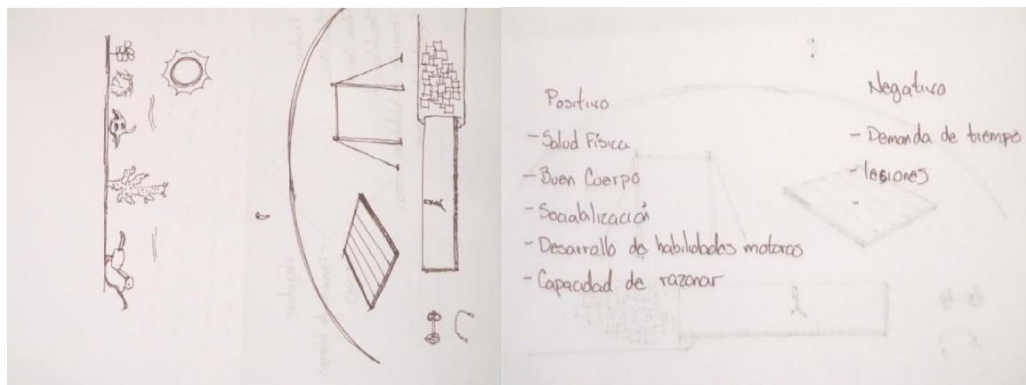 Positivo
- Salud Física
- Buen Cuerpo
- Sociabilización
- Desarrollo de habilidades motoras
- Capacidad de razonar
Negativo
- Demanda de tiempo
- lesiones
-